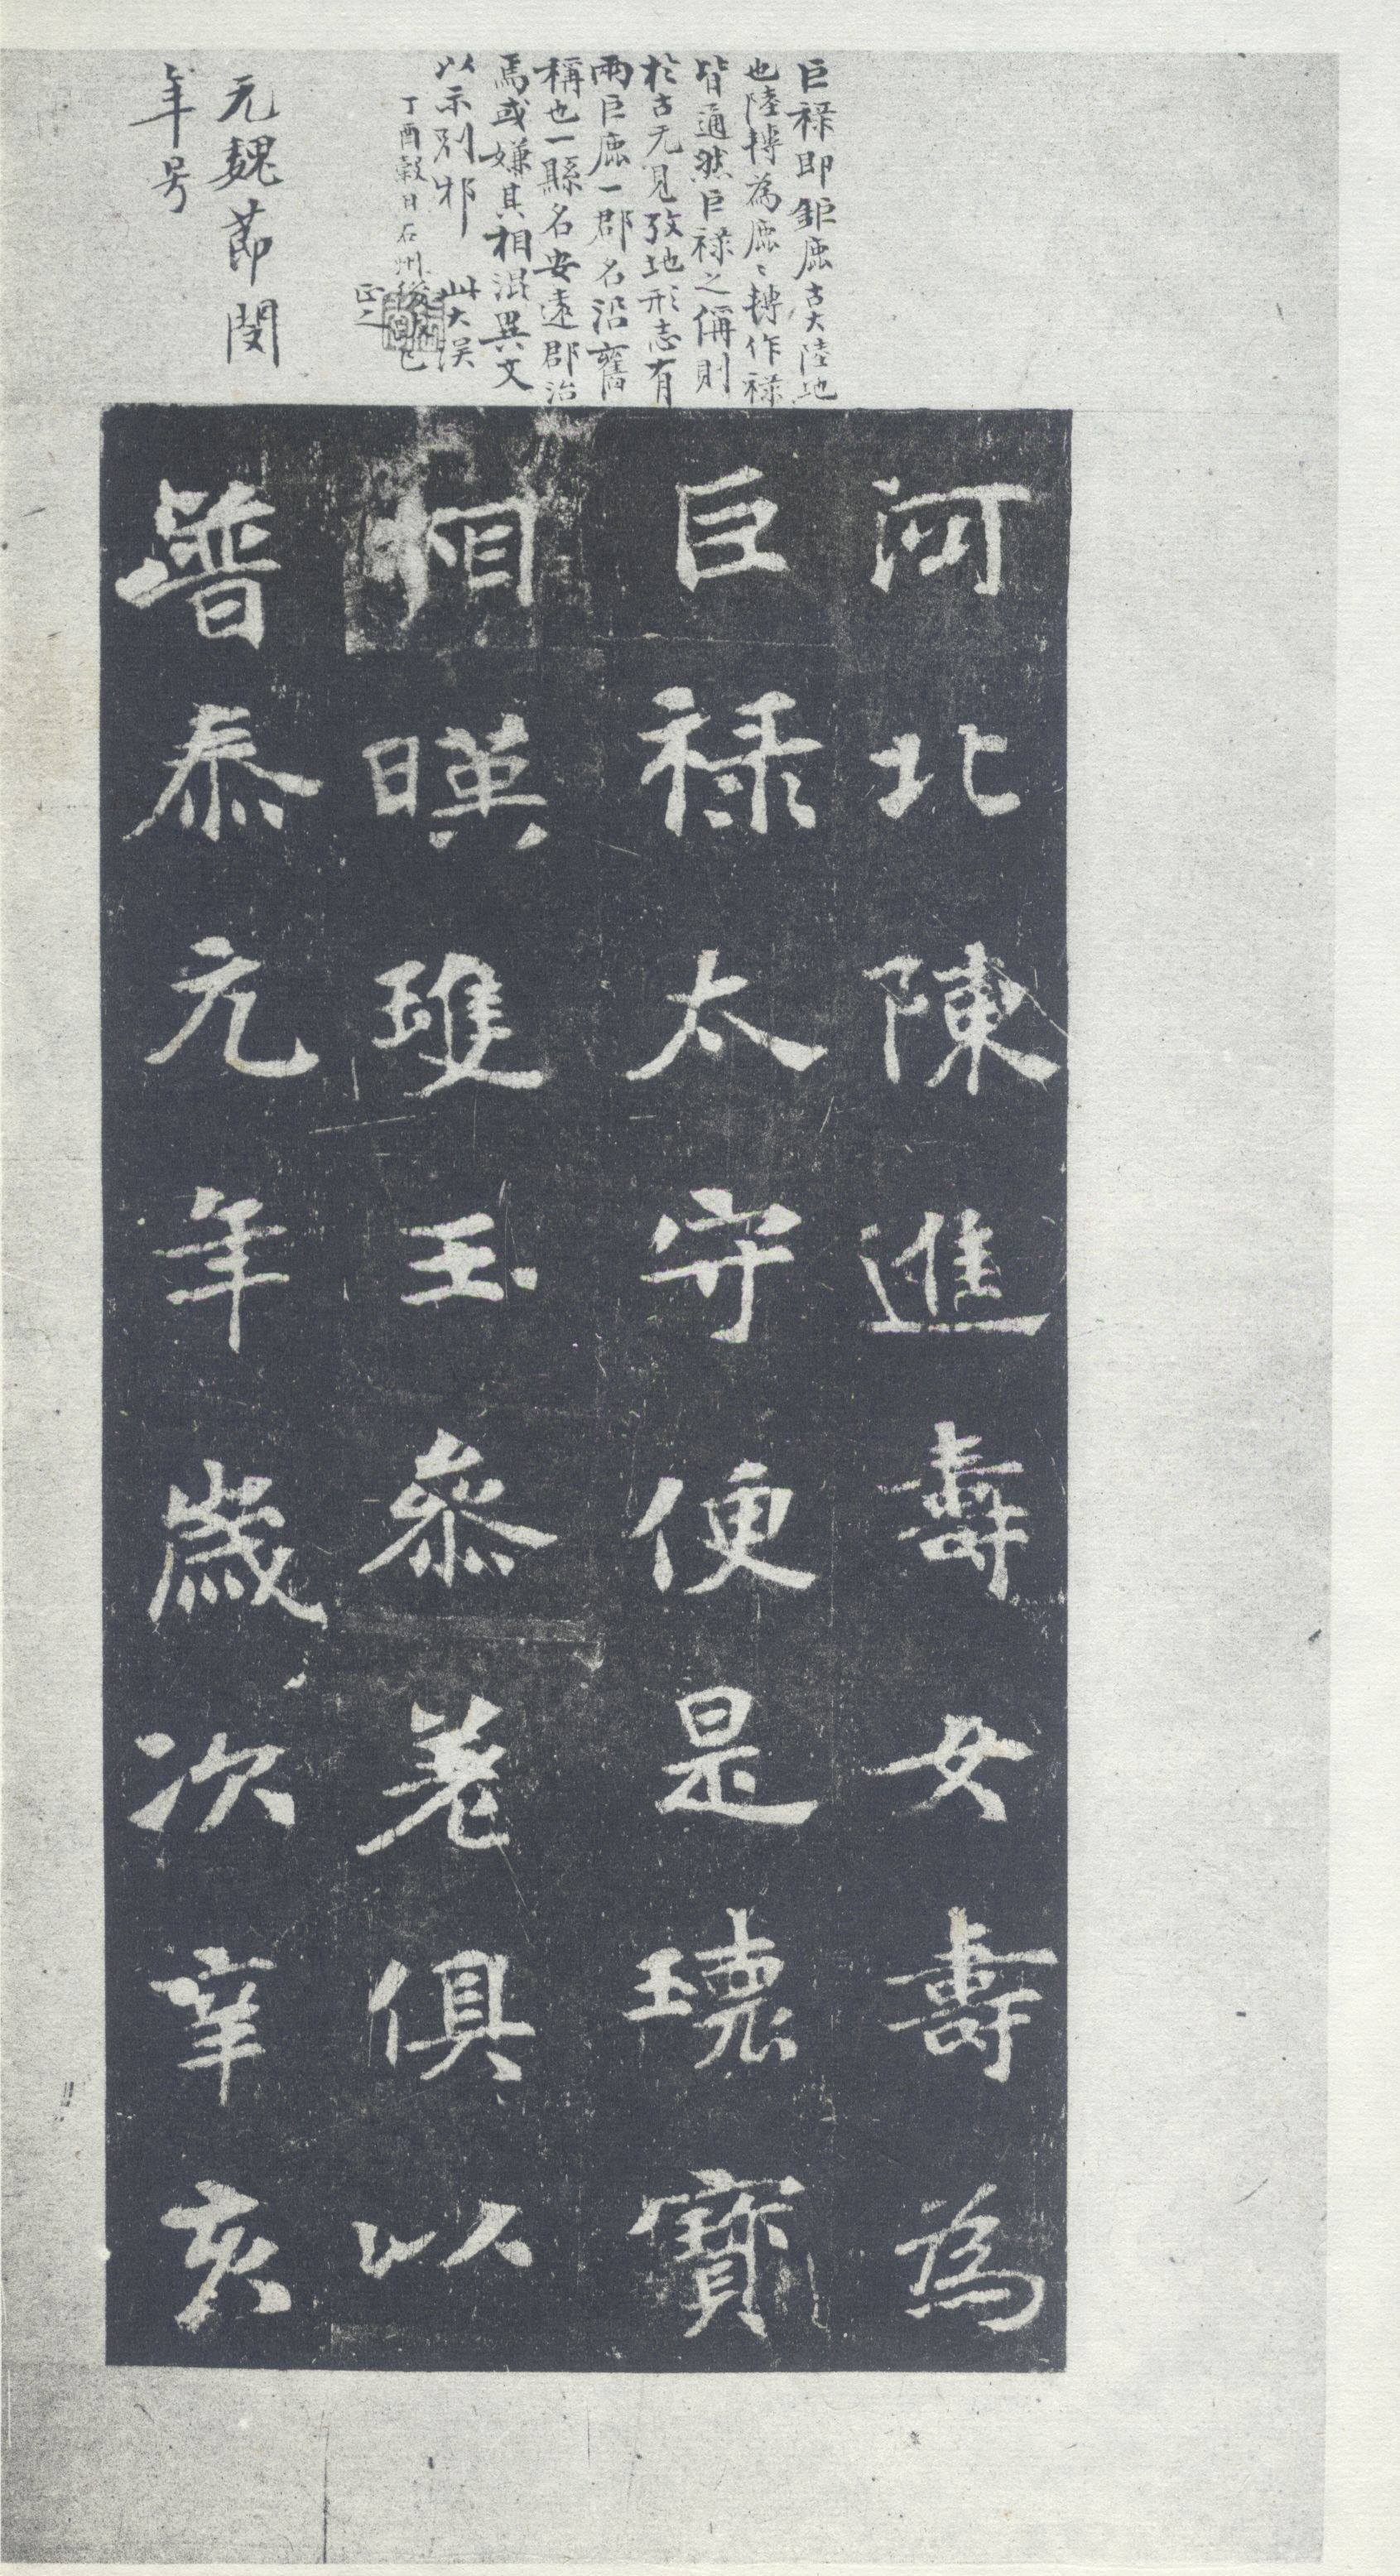 巨禄即鉅鹿古大陸地
也陸轉為鹿〻轉作禄
皆通然巨禄之偁則
於古无見攷地形志有
兩巨鹿一郡名沿舊
稱也一縣名安遠郡治
焉或嫌其相混異文
以示別邪 此大误
丁酉穀日石州
正之
元魏節閔
年号
河北陳進壽女壽為
巨禄太守便是瓌寶
相暎瓊玉參差俱以
普泰元年歲次辛亥